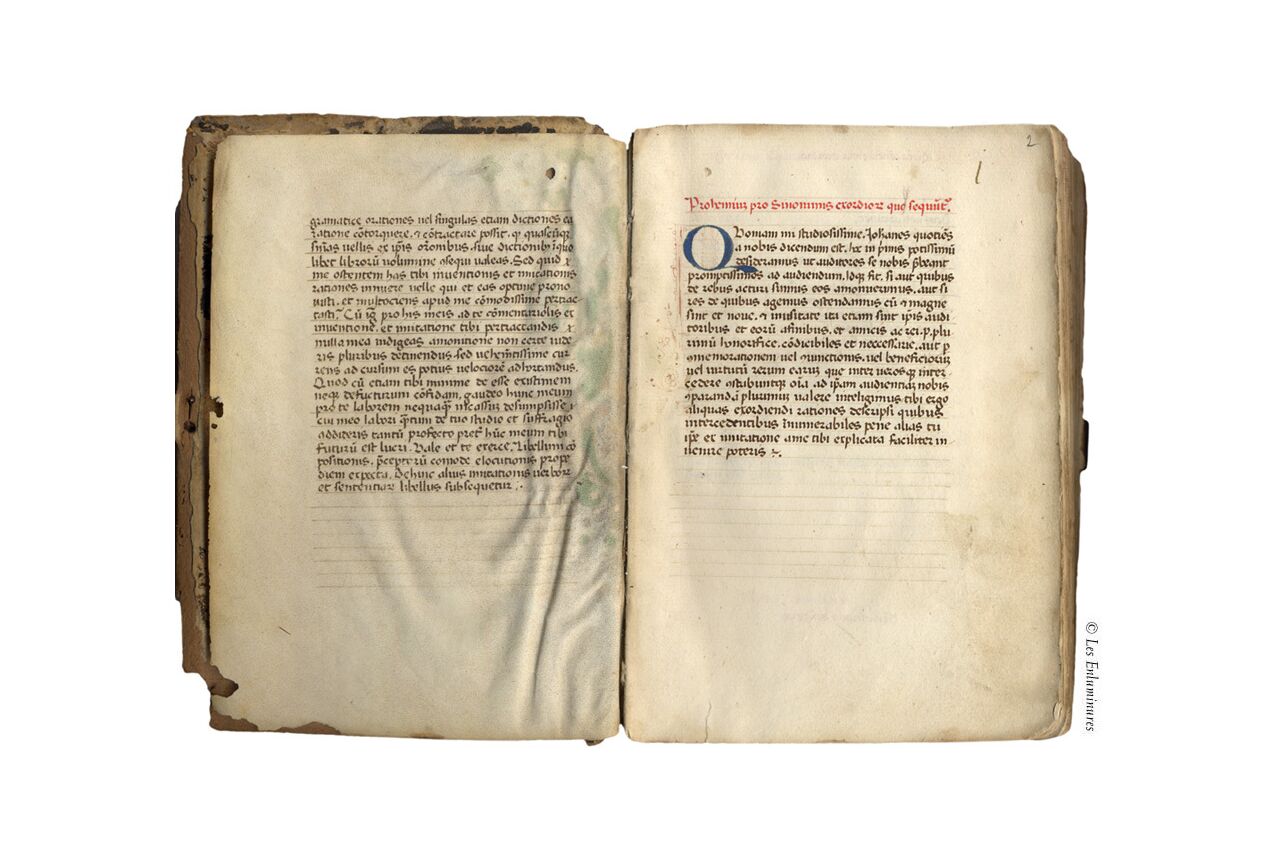 gramatice orationes uel singulas etiam dictiones cō
ratione cōtorquere, & cōtractare possit. qͥ quascūqꝫ
snīas uellis ex ip̄is orōnibus. siue dictionibꝫ i quo
libet librorū uolumine ꝯsequi ualeas. Sed quid ē
me ostentem has tibi inuentionis et imitationis
rationes inuere uelle qui et eas optime prono
uisti. et multociens apud me cōmodissime pertrac-
tasti. Cū igr̄ pro his meis ad te cōmentariolis et
inuentione. et imitatione tibi pertractandis
nulla mea indigeas amonitione non certe uide
ris pluribus detinendus sed uehem̄tissime cur
rens ad cursum es potius uelociorē adhortandus.
Quod cū etiam tibi minime de esse existimem
neqꝫ defucturum cōfidam. gaudeo hunc meum
pro te laborem nequaqꝫ incassum desumpsisse
cui meo labori qͣntum de tuo studio et suffragio
addideris tantū profecto pret̄ hūc meum tibi
futurū est lucri. Vale et te exerce. Libellum cō
positionis. p̄ceptorū comode elocutionis prope
diem expecta. Dehinc alius imitationis uerborꝝ
et sententiarꝝ libellus subsequetur.
2
1
Prohemiuꝫ pro Sinonimis exordiorꝝ que sequūt᷒.
QVoniam mi studiosissime. Iohanes quotiēs
a nobis dicendum est. hec in p̄mis potissimū
desideramus ut auditores se nobis p̄beant
promptissimos ad audiendum. Idqꝫ fit. si aut quibus
de rebus acturi sumus eos amonuerimus. aut si
res de quibus agemus ostendamus cū & magne
sint et noue. & inusitate iti etiam sint ip̄is audi
toribus et eorū afinibus. et amicis ac rei .p. plu
rimū honorifice. cōdicibiles et neccessarie. aut p
ꝯmemorationem uel ꝯiunctionis. uel beneficioruꝫ
uel uirtutū rerum earuꝫ que inter uerosqꝫ inter-
cedere ostabuntqꝫ oīa ad ip̄am audientiaꝫ nobis
ꝯparandā plurimū ualere inteligimus tibi ergo
aliquas exordiendi rationes descripsi quibus
intercedentibus īnumerabiles pene alias tu
ip̄e ex imitatione a me tibi explicata faciliter in-
uenire poteris
© Les Enluminures